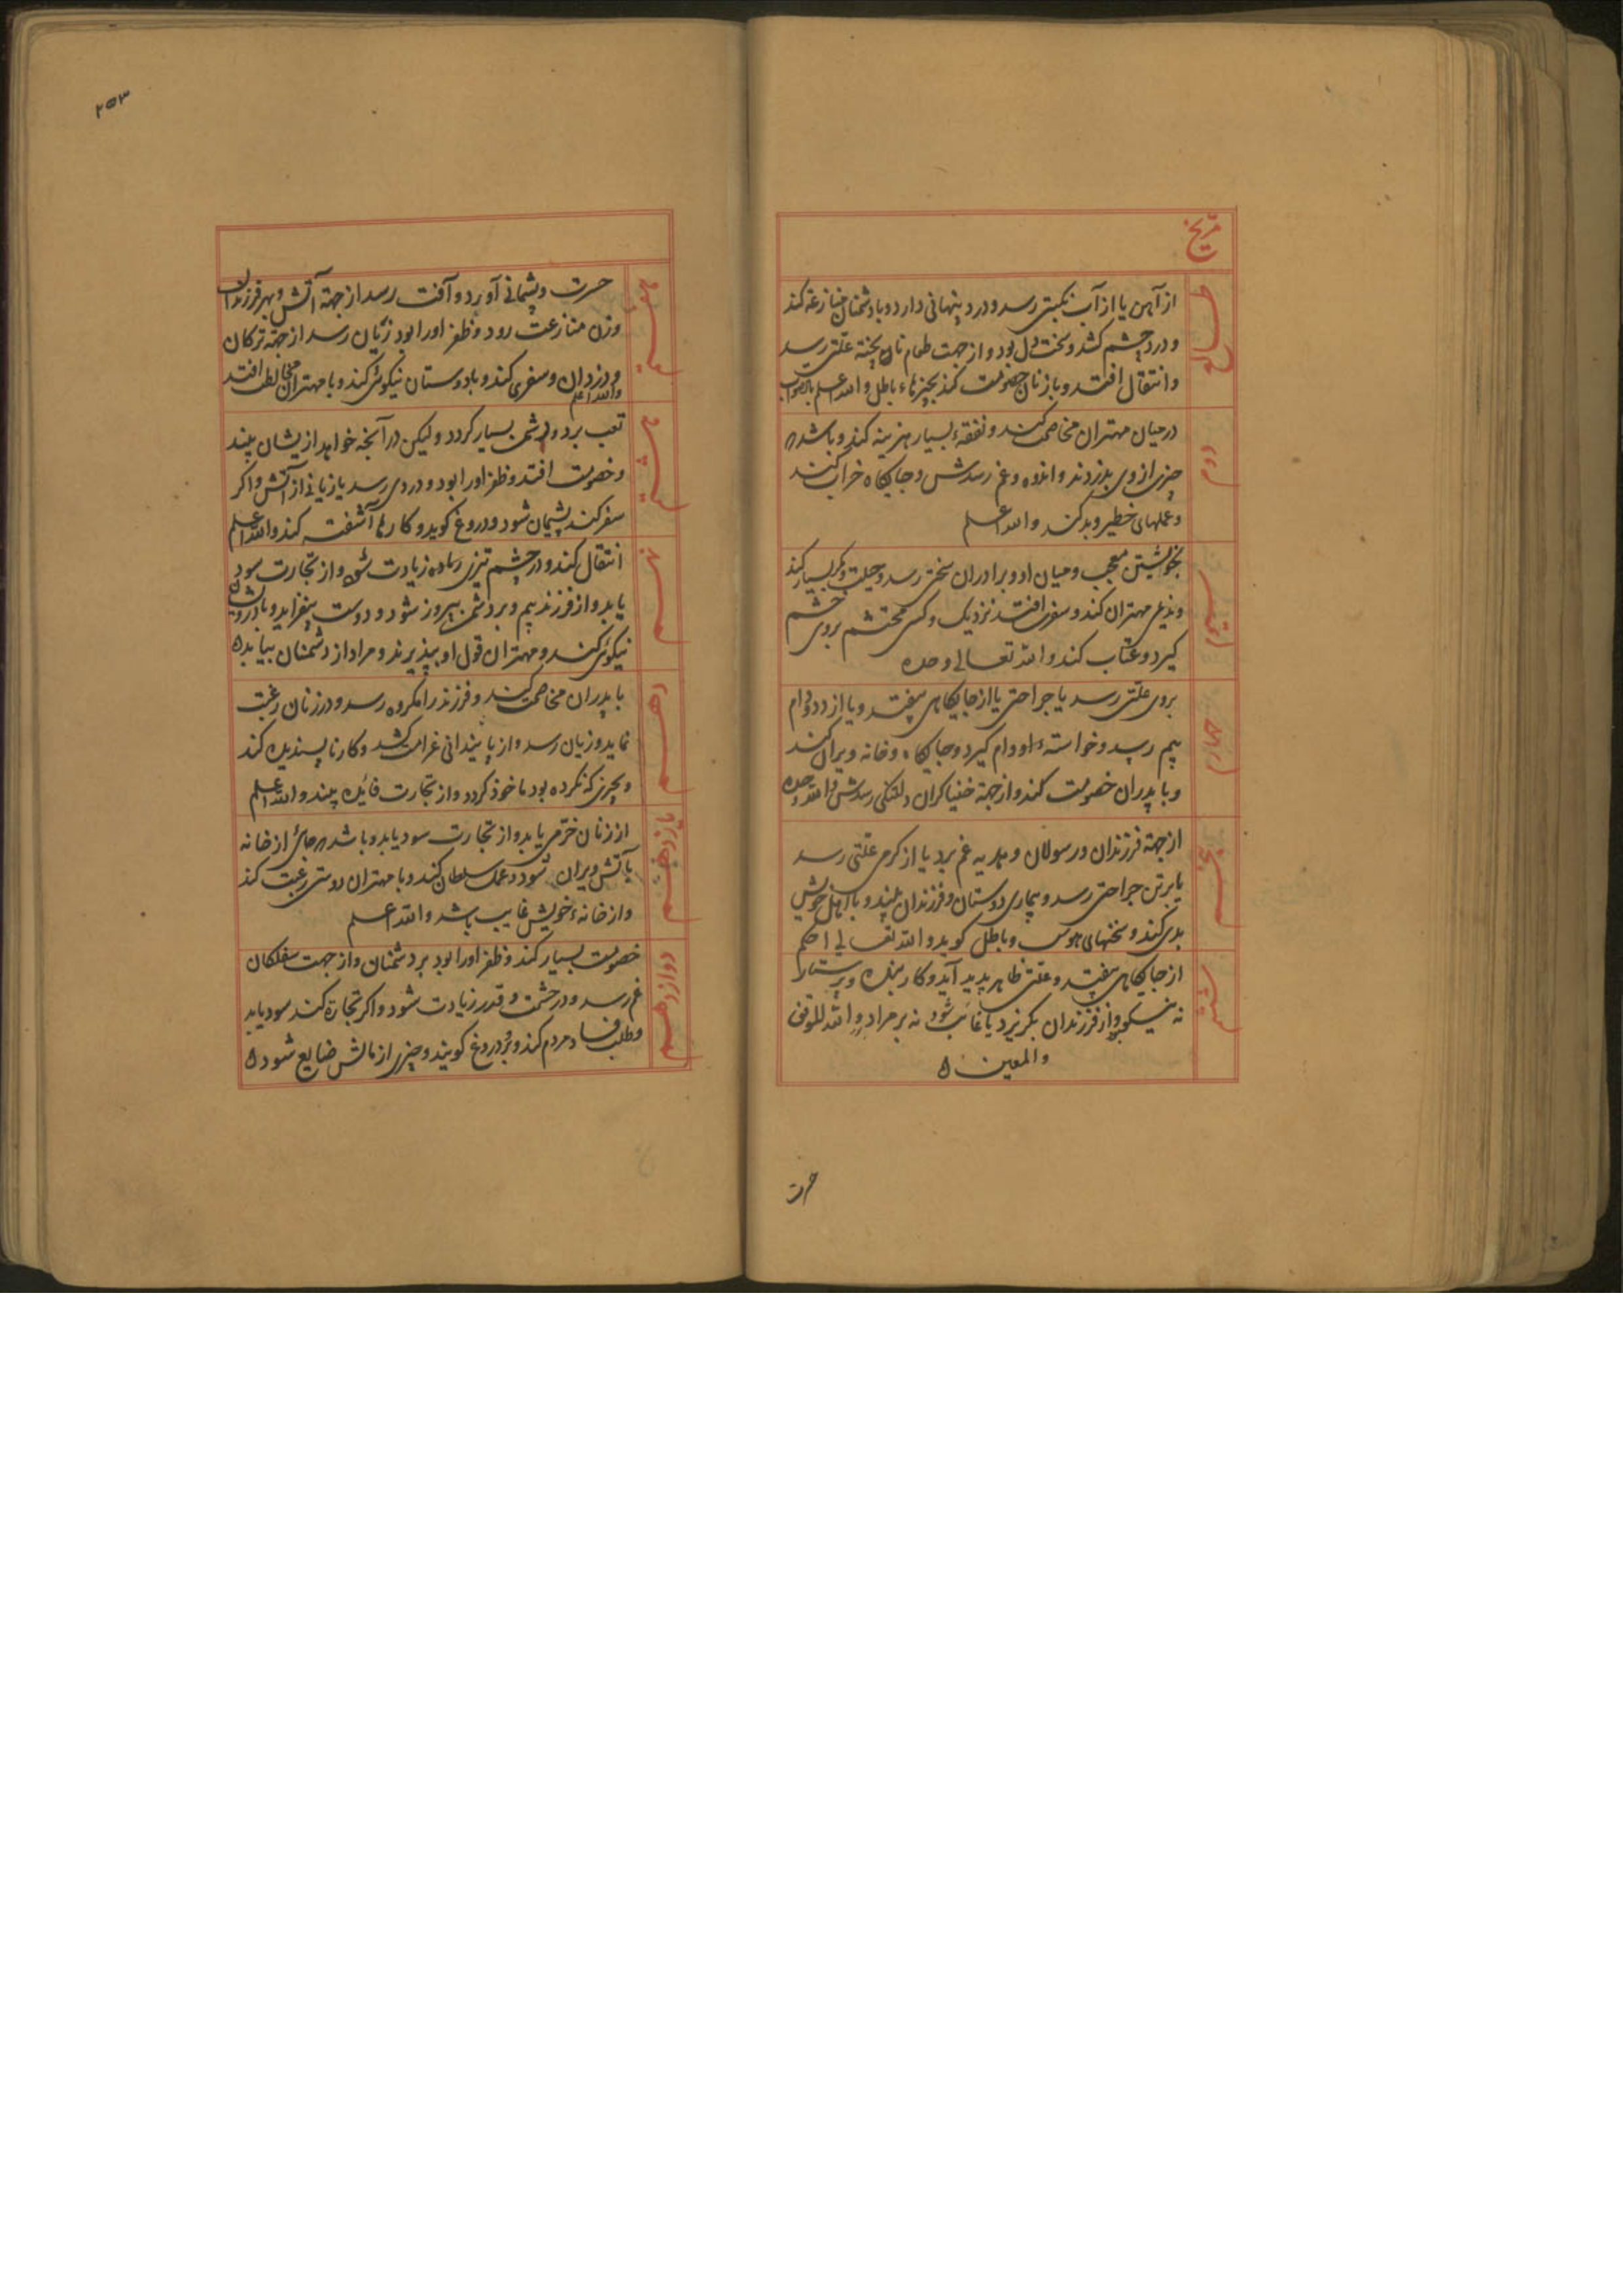 مریخ
طالع
از آهن یا از آب نکبتی رسد و درد پنهانی دارد و با دشمنان منازعة کند
و درد چشم کشد و سخت دل بود و از جهت طعام نان پخته علتی رسد
و انتقال افتد و با زنان خصومت کند بچیزهاء باطل والله اعلم بالصواب
دوم
در میان مهتران مخاصمت کند و نفقهٔ بسیار هزینه کند و باشد که
چیزی از وی بدزدند و اندوه و غم رسدش و جایکاه خراب کند
و عملهای خطیر و بد کند والله اعلم
سیوم
بخویشتن معجب و میان او و برادران سختی رسد و حیلت و مکر بسیار کند
و ندیمی مهتران کند و سفری افتد نزدیک و کسی محتشم بروی خشم
کیرد و عتاب کند والله تعالی وحده
چهارم
بروی علتی رسد یا جراحتی یا از جایکاهی بیفتد و یا از دد و دام
بیم رسد و خواستهٔ او وام کیرد و جایکاه و خانه ویران کند
و با پدران خصومت کند و از جهة خنیاکران دلتنکی رسدش والله وحده
پنجم
از جهة فرزندان و رسولان و هدیه غم برد یا از کرمی علتی رسد
یا برتن جراحتی رسد و بیماری دوستان و فرزندان بیند و با اهل خویش
بدی کند و سخنهای هوس و باطل کوید والله تعالی احکم
ششم
از جایکاهی بیفتد و علتی ظاهر پدید آید و کار بنده و پرستار
نه نیکو بود از فرزندان بکریزد یا غائب شود نه بر مراد والله للموفق
والمعین
حسرت
۲۵۳
هفتم
حسرت و پشیمانی آورد و آفت رسد از جهة آتش و بهر فرزندان
و زن منازعت رود و ظفر او را بود زیان رسد از جهة ترکان
و دزدان و سفری کند و با دوستان نیکوئی کند و با مهتران مخالطت افتد
والله اعلم
هشتم
تعب برد و دشمن بسیار کردد ولیکن در آنچه خواهد ازیشان بیند
و خصومت افتد و ظفر او را بود و دردی رسد یا زیانی از آتش و اکر
سفر کند پشیمان شود و دروغ کوید و کارها آشفته کند والله اعلم
نهم
انتقال کند و در چشم تیزی زیادت شود و از تجارت سود
یابد و از فرزند بیم و بر دشمن پیروز شود و دوست بیفزاید و با درویشان
نیکوئی کند و مهتران قول او بپذیرند و مراد از دشمنان بیابد
دهم
با پدران مخاصمت کند و فرزند را مکروه رسد و در زنان رغبت
نماید و زیان رسد و از پایندانی غرامت کشد و کار ناپسندیده کند
و بچیزی که نکرده بود ماخوذ کردد و از تجارت فائده بیند والله اعلم
یازدهم
از زنان خرمی یابد و از تجارت سود یابد و باشد که جائی از خانه
بآتش ویران شود و عمل سلطان کند و با مهتران دوستی رغبت کند
و از خانهٔ خویش غایب باشد والله اعلم
دوازدهم
خصومت بسیار کند و ظفر او را بود بر دشمنان و از جهت سفلکان
غم رسد و در حشمت و قدر زیادت شود و اکر تجارة کند سود یابد
و طلب فساد مردم کند و بر دروغ کویند و چیزی از مالش ضایع شود